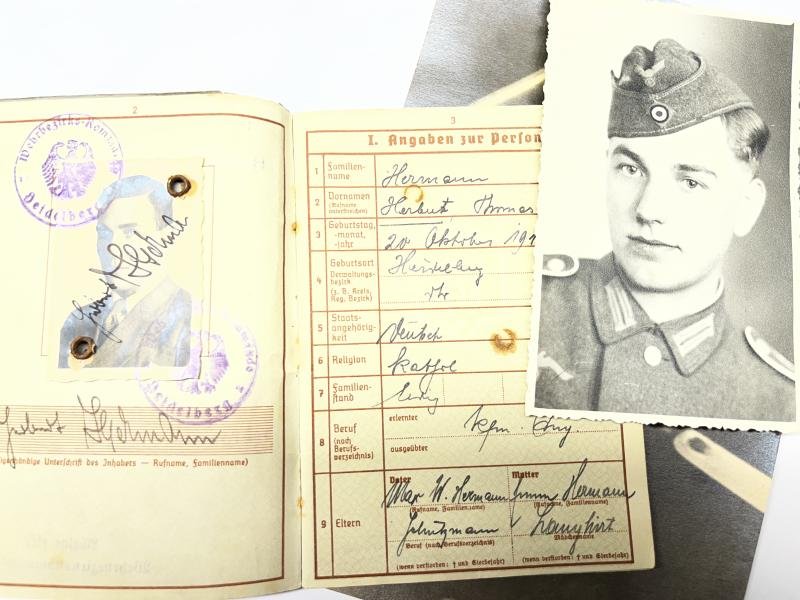 2
Wehrbezirks-Komman
Heidelberg
Heidelberg
Hermann
(Eigenhändige Unterschrift des Inhabers — Rufname, Familienname)
3
I. Angaben zur Person
1 Familienname Hermann
2 Vornamen (Rufname unterstreichen) Herbert, Thomas
3 Geburtstag, -monat, -jahr 20 Oktober 191
4 Geburtsort Verwaltungsbezirk (z. B. Kreis, Reg. Bezirk) Heidelberg
5 Staatsangehörigkeit deutsch
6 Religion kathol
7 Familienstand ledig
8 Beruf (nach Berufsverzeichnis) erlernter kfm. Ang.
ausgeübter
9 Eltern
Vater Max W. Hermann
(Rufname, Familienname)
Schutzmann
Beruf (nach Berufsverzeichnis)
(wenn verstorben: † und Sterbejahr)
Mutter Hermann
(Rufname, Familienname)
Mädchenname
(wenn verstorben: † und Sterbejahr)